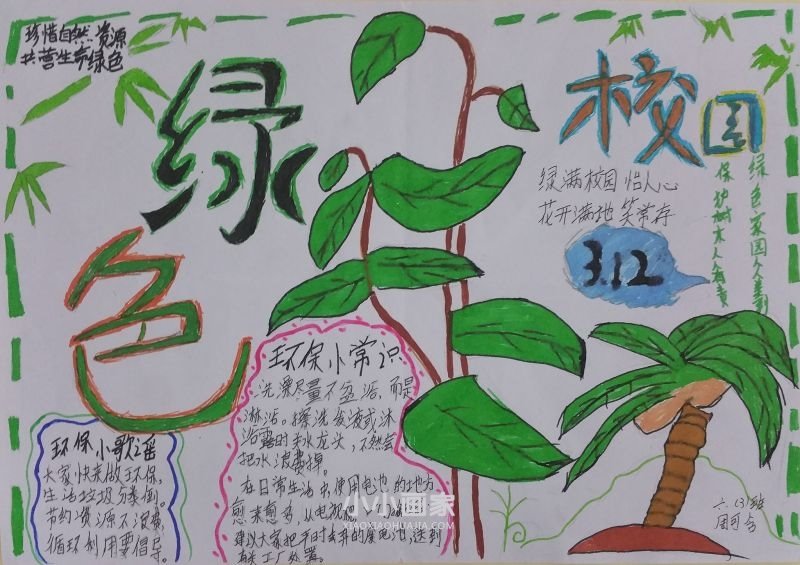 珍惜自然资源
共营生命绿色
绿
色
校园
绿满校园怡人心
花开满地笑常存
3.12
绿色家园人
保护树木人人有责
环保小常识
洗澡尽量不盆浴,而是
淋浴。擦洗发液或沐
浴露时关水龙头,不然会
把水浪费掉。
在日常生活中,使用电池的地方
愈来愈多,从电视
建议大家把平时
环保小歌谣
大家快来做环保,
生活垃圾分类倒。
节约资源不浪费,
循环利用要倡导。
小小画家
XIAOXIAOHUAJIA.COM
六(3)班